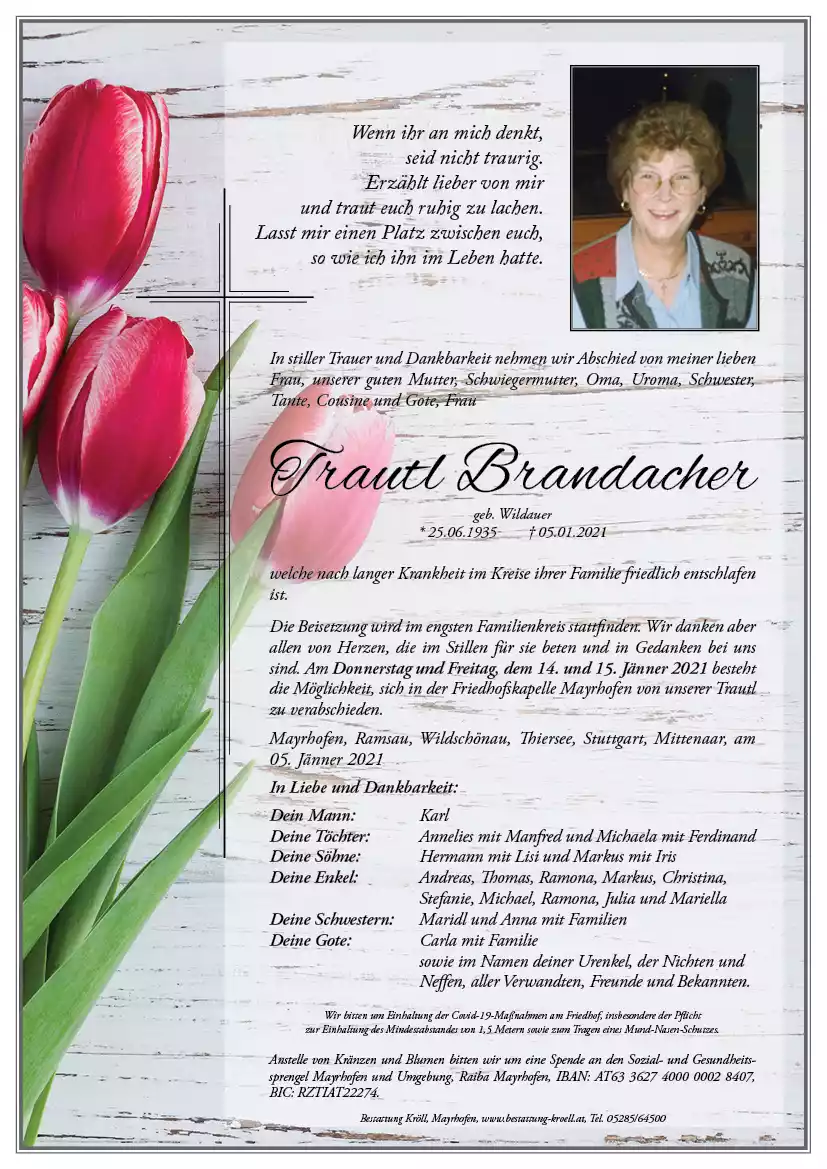 Wenn ihr an mich denkt,
seid nicht traurig.
Erzählt lieber von mir
und traut euch ruhig zu lachen.
Lasst mir einen Platz zwischen euch,
so wie ich ihn im Leben hatte.
In stiller Trauer und Dankbarkeit nehmen wir Abschied von meiner lieben
Frau, unserer guten Mutter, Schwiegermutter, Oma, Uroma, Schwester,
Tante, Cousine und Gote, Frau
Trautl Brandacher
geb. Wildauer
* 25.06.1935 † 05.01.2021
welche nach langer Krankheit im Kreise ihrer Familie friedlich entschlafen
ist.
Die Beisetzung wird im engsten Familienkreis stattfinden. Wir danken aber
allen von Herzen, die im Stillen für sie beten und in Gedanken bei uns
sind. Am Donnerstag und Freitag, dem 14. und 15. Jänner 2021 besteht
die Möglichkeit, sich in der Friedhofskapelle Mayrhofen von unserer Trautl
zu verabschieden.
Mayrhofen, Ramsau, Wildschönau, Thiersee, Stuttgart, Mittenaar, am
05. Jänner 2021
In Liebe und Dankbarkeit:
Dein Mann: Karl
Deine Töchter: Annelies mit Manfred und Michaela mit Ferdinand
Deine Söhne: Hermann mit Lisi und Markus mit Iris
Deine Enkel: Andreas, Thomas, Ramona, Markus, Christina,
Stefanie, Michael, Ramona, Julia und Mariella
Deine Schwestern: Maridl und Anna mit Familien
Deine Gote: Carla mit Familie
sowie im Namen deiner Urenkel, der Nichten und
Neffen, aller Verwandten, Freunde und Bekannten.
Wir bitten um Einhaltung der Covid-19-Maßnahmen am Friedhof, insbesondere der Pflicht
zur Einhaltung des Mindestabstandes von 1,5 Metern sowie zum Tragen eines Mund-Nasen-Schutzes.
Anstelle von Kränzen und Blumen bitten wir um eine Spende an den Sozial- und Gesundheits-
sprengel Mayrhofen und Umgebung, Raiba Mayrhofen, IBAN: AT63 3627 4000 0002 8407,
BIC: RZTIAT22274.
Bestattung Kröll, Mayrhofen, www.bestattung-kroell.at, Tel. 05285/64500